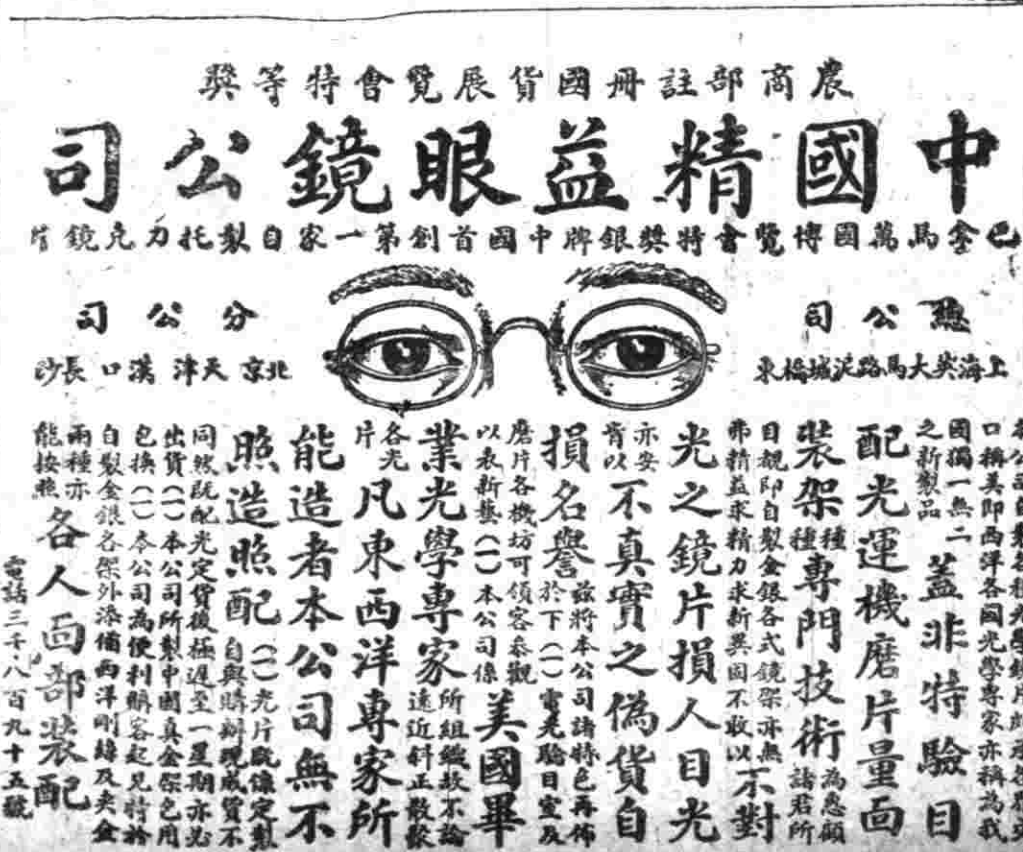 農商部註冊國貨展覽會特等獎
中國精益眼鏡公司
巴拿馬萬國博覽會特獎銀牌中國首創第一家自製托力克鏡片
總公司
上海英大馬路泥城橋東
分公司
北京 天津 漢口 長沙
口稱美即西洋各國光學專家亦稱為我
國獨一無二
之新製品
蓋非特驗目
配光運機磨片量面
裝架種種專門技術為惠顧
諸君所
目覩即自製金銀各式鏡架亦無
弗精益求精力求新異固不敢以
不對
光之鏡片損人目光
亦妄
肯以
不真實之偽貨自
損名譽
茲將本公司諸特色再佈
於下(一)電光驗目室及
磨片各機坊可領客參觀
以表新藝(一)本公司係
美國畢
業光學專家
所組織故不論
遠近斜正散聚
各光
片
凡東西洋專家所
能造者本公司無不
照造照配
(一)光片既係定製
自與購辦現成貨不
同然既配光定貨後極遲至一星期亦必
出貨(一)本公司所製中國真金架包用
包換(一)本公司為便利購客起見特於
自製金銀各架外添備西洋剛絲及夾金
兩種亦
能按照
各人面部裝配
電話三千八百九十五號